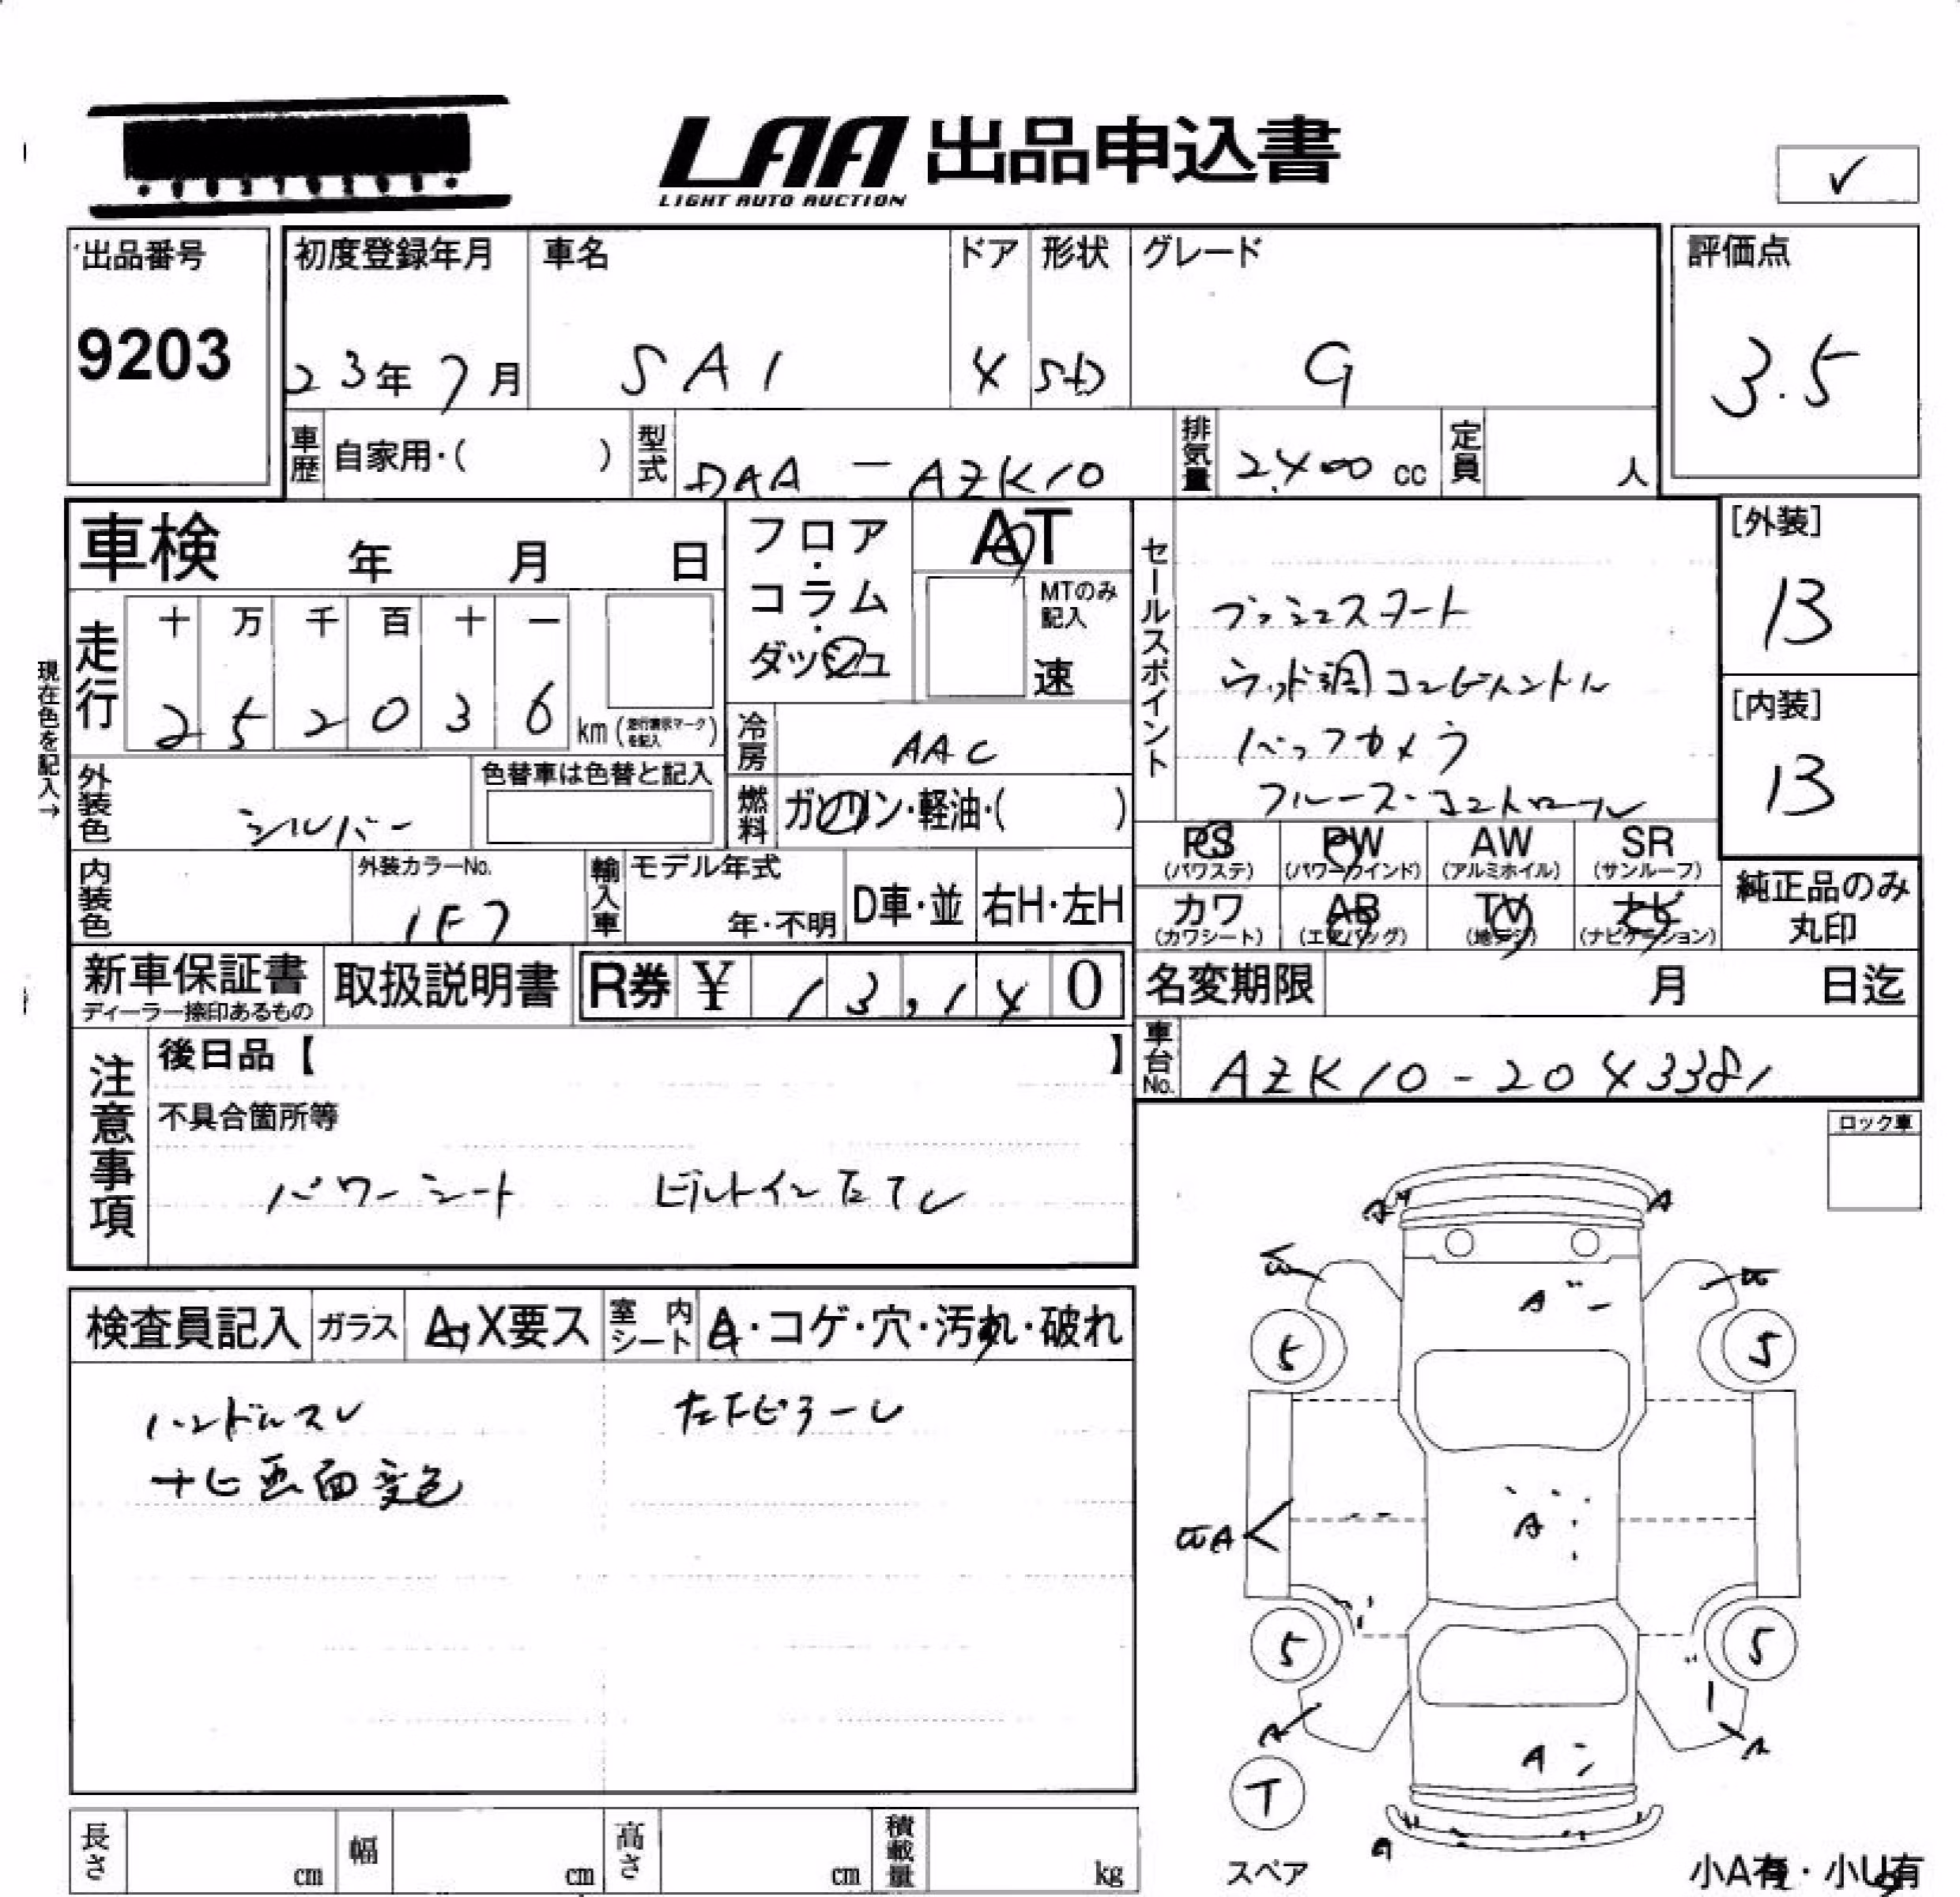 LAA 出品申込書
LIGHT AUTO AUCTION
✓
出品番号
9203
初度登録年月
23年7月
車名
SAI
ドア
4
形状
SD
グレード
G
評価点
3.5
車歴 自家用・( )
型式 DAA-AZK10
排気量 2,400 cc
定員 人
車検 年 月 日
フロア・コラム・ダッシュ
AT
MTのみ記入
速
セールスポイント
プッシュスタート
ウッド調コンビハンドル
バックカメラ
クルーズ・コントロール
[外装]
B
[内装]
B
現在色を記入→
走行
十 万 千 百 十 一
2 5 2 0 3 6
km (走行表示マークを記入)
冷房 AAC
外装色 シルバー
色替車は色替と記入
燃料 ガソリン・軽油・( )
PS (パワステ)
PW (パワーウインド)
AW (アルミホイル)
SR (サンルーフ)
カワ (カワシート)
AB (エアバッグ)
TV (地デジ)
ナビ (ナビゲーション)
純正品のみ丸印
内装色
外装カラーNo.
1F7
輸入車
モデル年式
年・不明
D車・並
右H・左H
新車保証書
ディーラー捺印あるもの
取扱説明書
R券 ¥ 13,140
名変期限 月 日迄
車台No. AZK10-2043381
注意事項
後日品【 】
不具合箇所等
パワーシート ビルトインETC
ロック車
検査員記入
ガラス A・X要ス
室内シート A・コゲ・穴・汚れ・破れ
ハンドルスレ
ナビ画面変色
A A
W W
A
5 5
WA A
5 5
A A
A
T
A
スペア
小A有・小U有
長さ cm
幅 cm
高さ cm
積載量 kg